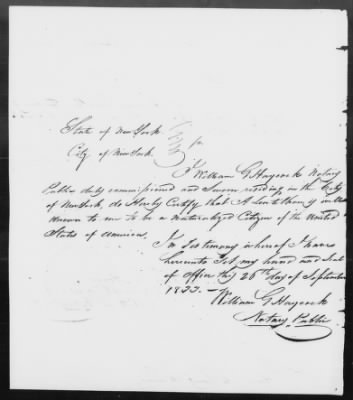 State of New York
City of New York
ss
I William G Haycock Notary
Public duly commissioned and Sworn residing in the City
of New York, do Hereby Certify that A Leonthomy is
known to me to be a Naturalized Citizen of the United
States of America.
In Testimony whereof I have
hereunto Set my hand and Seal
of office this 26th day of September
1855 —
William G Haycock
Notary Public